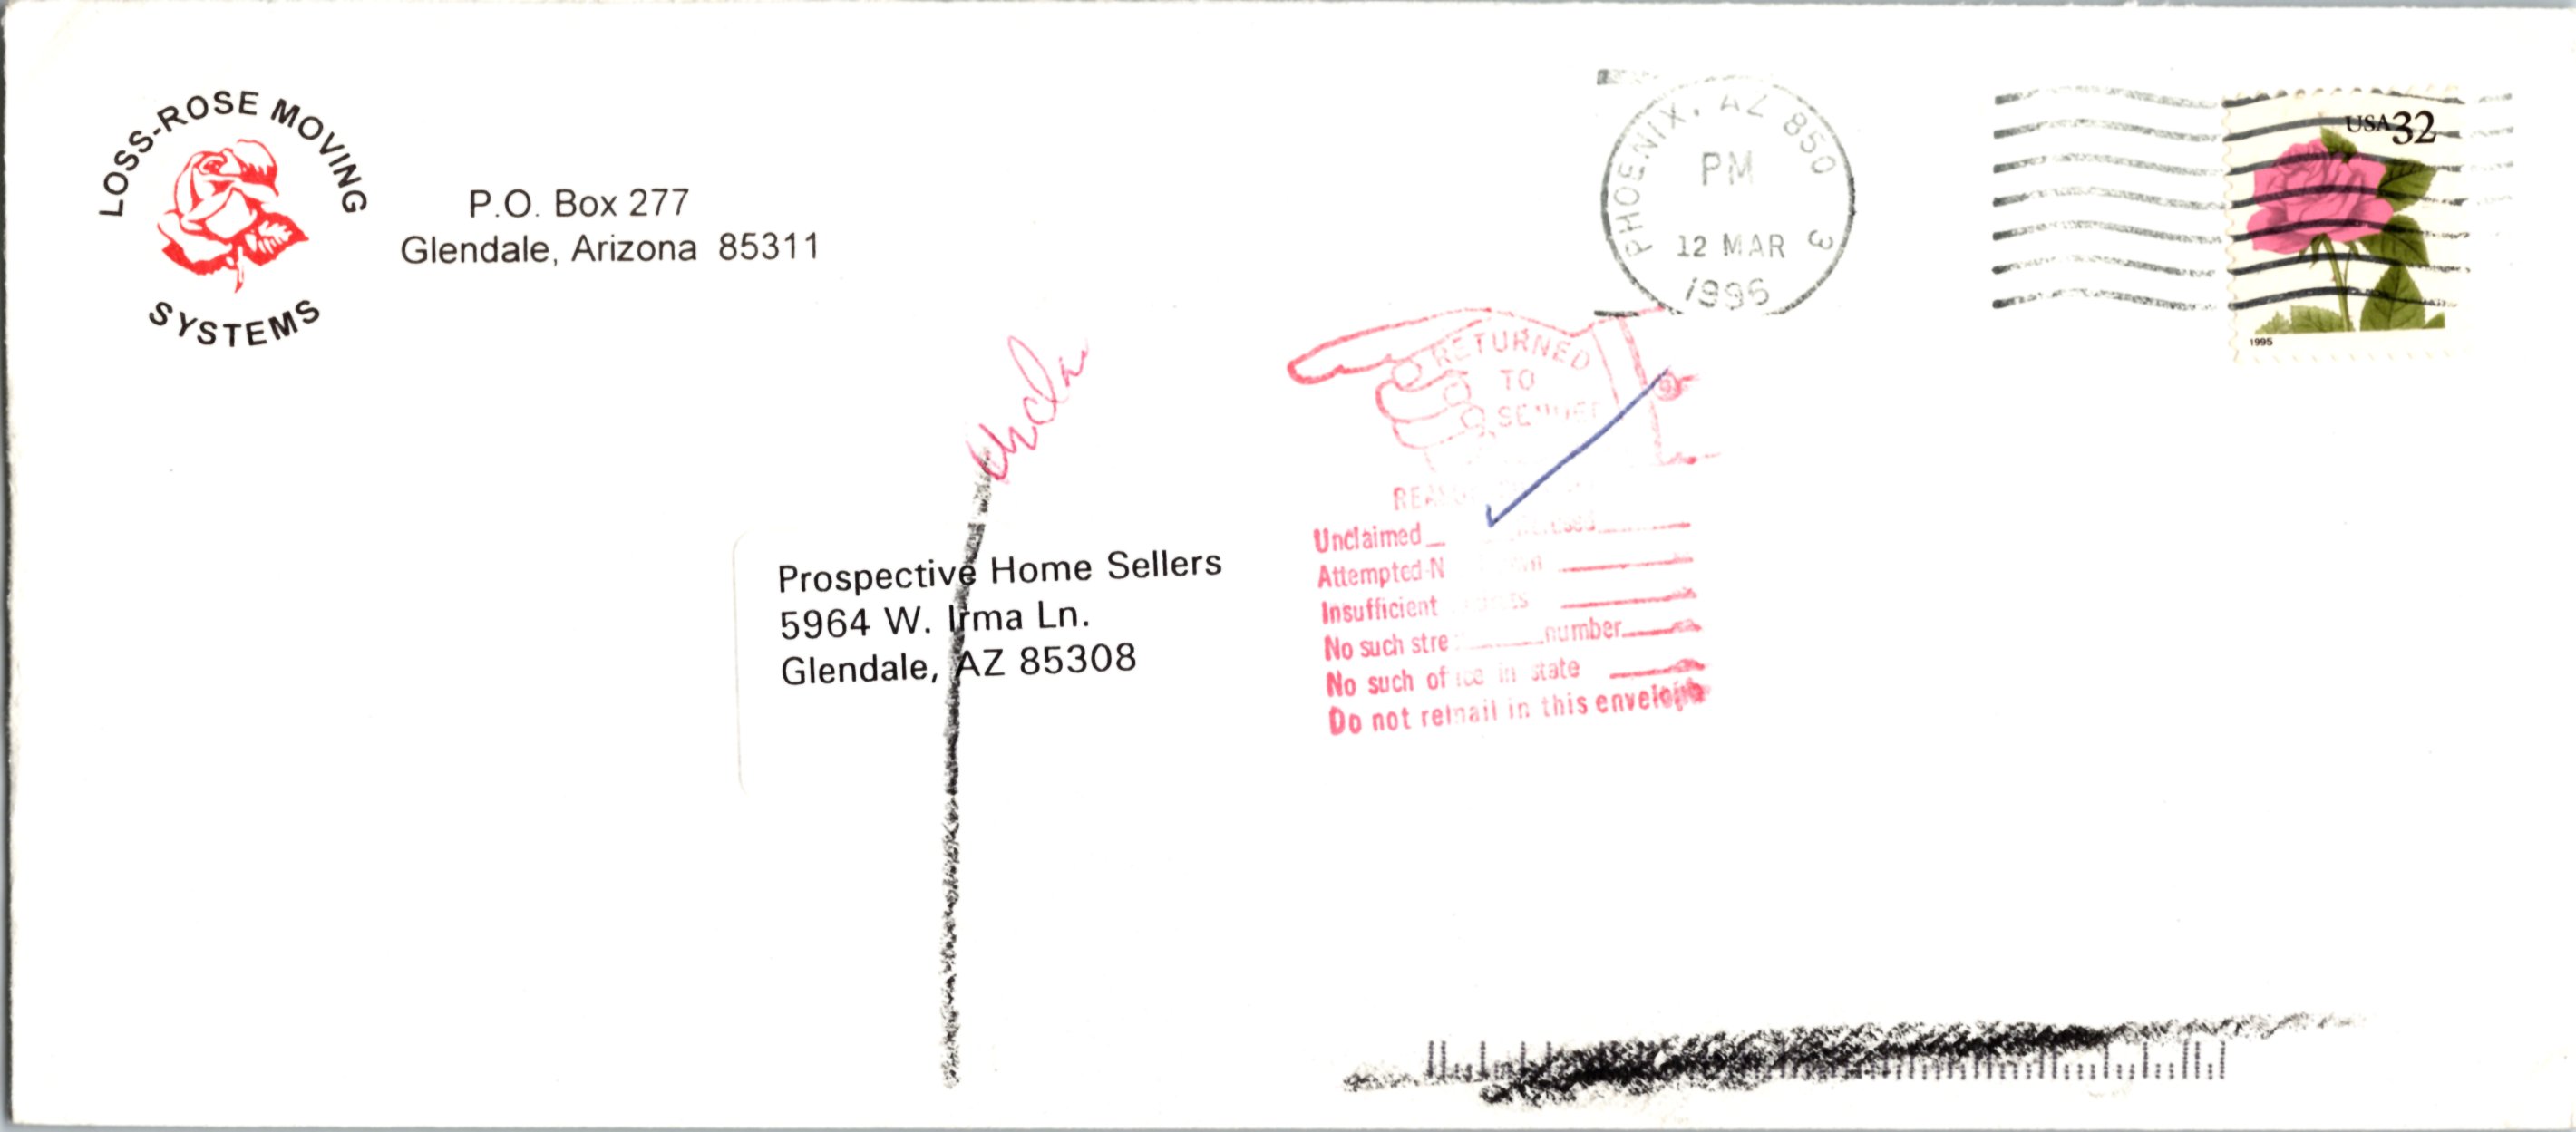 LOSS-ROSE MOVING
SYSTEMS
P.O. Box 277
Glendale, Arizona 85311
PHOENIX, AZ 850 3
PM
12 MAR
1996
USA 32
1995
RETURNED
TO
SENDER
Prospective Home Sellers
5964 W. Irma Ln.
Glendale, AZ 85308
Unclaimed
Attempted-N
Insufficient
No such stre number
No such office in state
Do not remail in this envelope